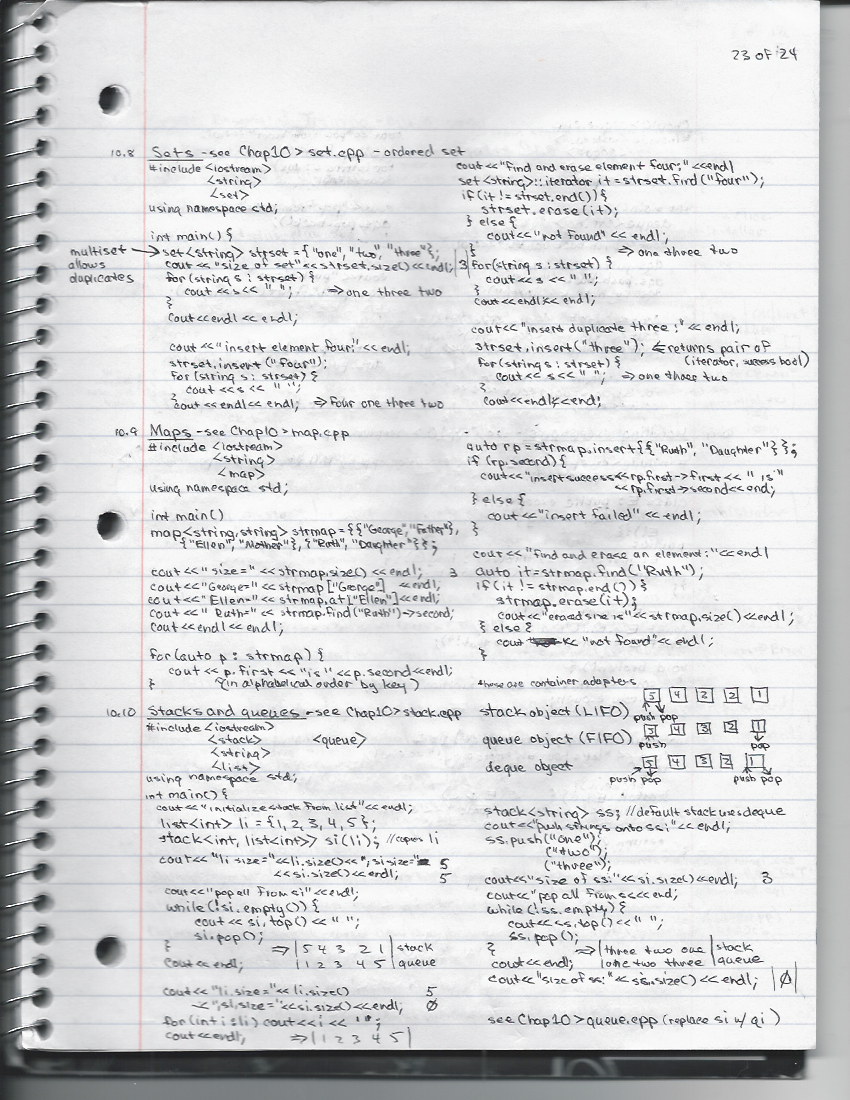 23 of 24
10.8 Sets - see Chap10 > set.cpp - ordered set
#include <iostream>
<string>
<set>
using namespace std;
int main() {
multiset allows duplicates → set<string> strset = {"one", "two", "three"};
cout << "size of set" << strset.size() << endl; 3
for(string s : strset) {
cout << s << " "; ⇒ one three two
}
cout << endl << endl;
cout << "insert element four:" << endl;
strset.insert("four");
for(string s : strset) {
cout << s << " ";
}
cout << endl << endl; ⇒ four one three two
cout << "find and erase element four:" << endl
set<string>::iterator it = strset.find("four");
if(it != strset.end()) {
strset.erase(it);
} else {
cout << "not found" << endl;
} ⇒ one three two
for(string s : strset) {
cout << s << " ";
}
cout << endl << endl;
cout << "insert duplicate three:" << endl;
strset.insert("three"); ⇐ returns pair of
for(string s : strset) { (iterator, success bool)
cout << s << " "; ⇒ one three two
}
cout << endl << endl;
10.9 Maps - see Chap10 > map.cpp
#include <iostream>
<string>
<map>
using namespace std;
int main()
map<string,string> strmap = {{"George","Father"},
{"Ellen", "Mother"}, {"Ruth", "Daughter"}};
cout << "size=" << strmap.size() << endl; 3
cout << "George=" << strmap["George"] << endl;
cout << "Ellen=" << strmap.at["Ellen"] << endl;
cout << "Ruth=" << strmap.find("Ruth")->second;
cout << endl << endl;
for(auto p : strmap) {
cout << p.first << "is" << p.second << endl;
} (in alphabetical order by key)
auto rp = strmap.insert{{"Ruth", "Daughter"}};
if (rp.second) {
cout << "insert success << rp.first->first << " is"
<< rp.first->second << end;
} else {
cout << "insert failed" << endl;
}
cout << "find and erase an element:" << endl
auto it = strmap.find("Ruth");
if(it != strmap.end()) {
strmap.erase(it);
cout << "erased size is" << strmap.size() << endl;
} else {
cout << "not found" << endl;
}
10.10 Stacks and queues - see Chap10 > stack.cpp
#include <iostream>
<stack> <queue>
<string>
<list>
using namespace std;
int main() {
cout << "initialize stack from list" << endl;
list<int> li = {1, 2, 3, 4, 5};
stack<int, list<int>> si(li); //copies li
cout << "li size=" << li.size() << "; si size="
<< si.size() << endl; 5 5
cout << "pop all from si" << endl;
while(!si.empty()) {
cout << si.top() << " ";
si.pop();
} ⇒ | 5 4 3 2 1 | stack
cout << endl; | 1 2 3 4 5 | queue
cout << "li.size=" << li.size() 5
<< ";si.size=" << si.size() << endl; 0
for(int i : li) cout << i << " ";
cout << endl; ⇒ | 1 2 3 4 5 |
these are container adapters
stack object (LIFO) 5 4 2 2 1
push pop
queue object (FIFO) 5 4 3 2 1
push pop
deque object 5 4 3 2 1
push pop push pop
stack<string> ss; //default stack uses deque
cout << "push strings onto ss:" << endl;
ss.push("one");
("two");
("three");
cout << "size of ss:" << si.size() << endl; 3
cout << "pop all from ss << end;
while(!ss.empty) {
cout << s.top() << " ";
ss.pop();
} ⇒ | three two one | stack
cout << endl; | one two three | queue
cout << "size of ss:" << ss.size() << endl; | 0 |
see Chap10 > queue.cpp (replace si w/ qi)